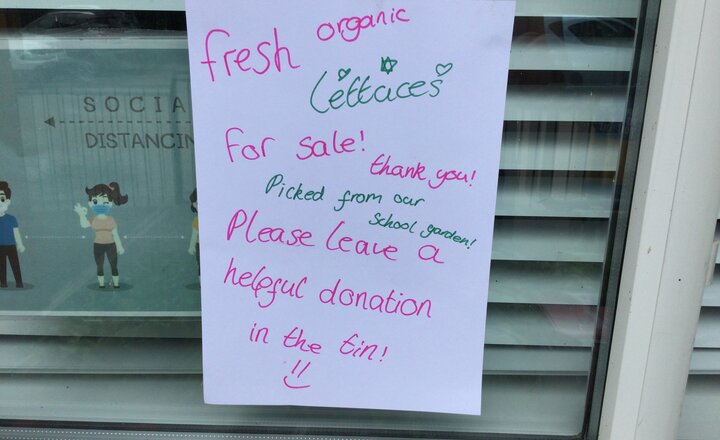 fresh organic
lettaces
for sale!
thank you!
Picked from our
School garden!
Please leave a
helpful donation
in the tin!
SOCIA
DISTANCIN